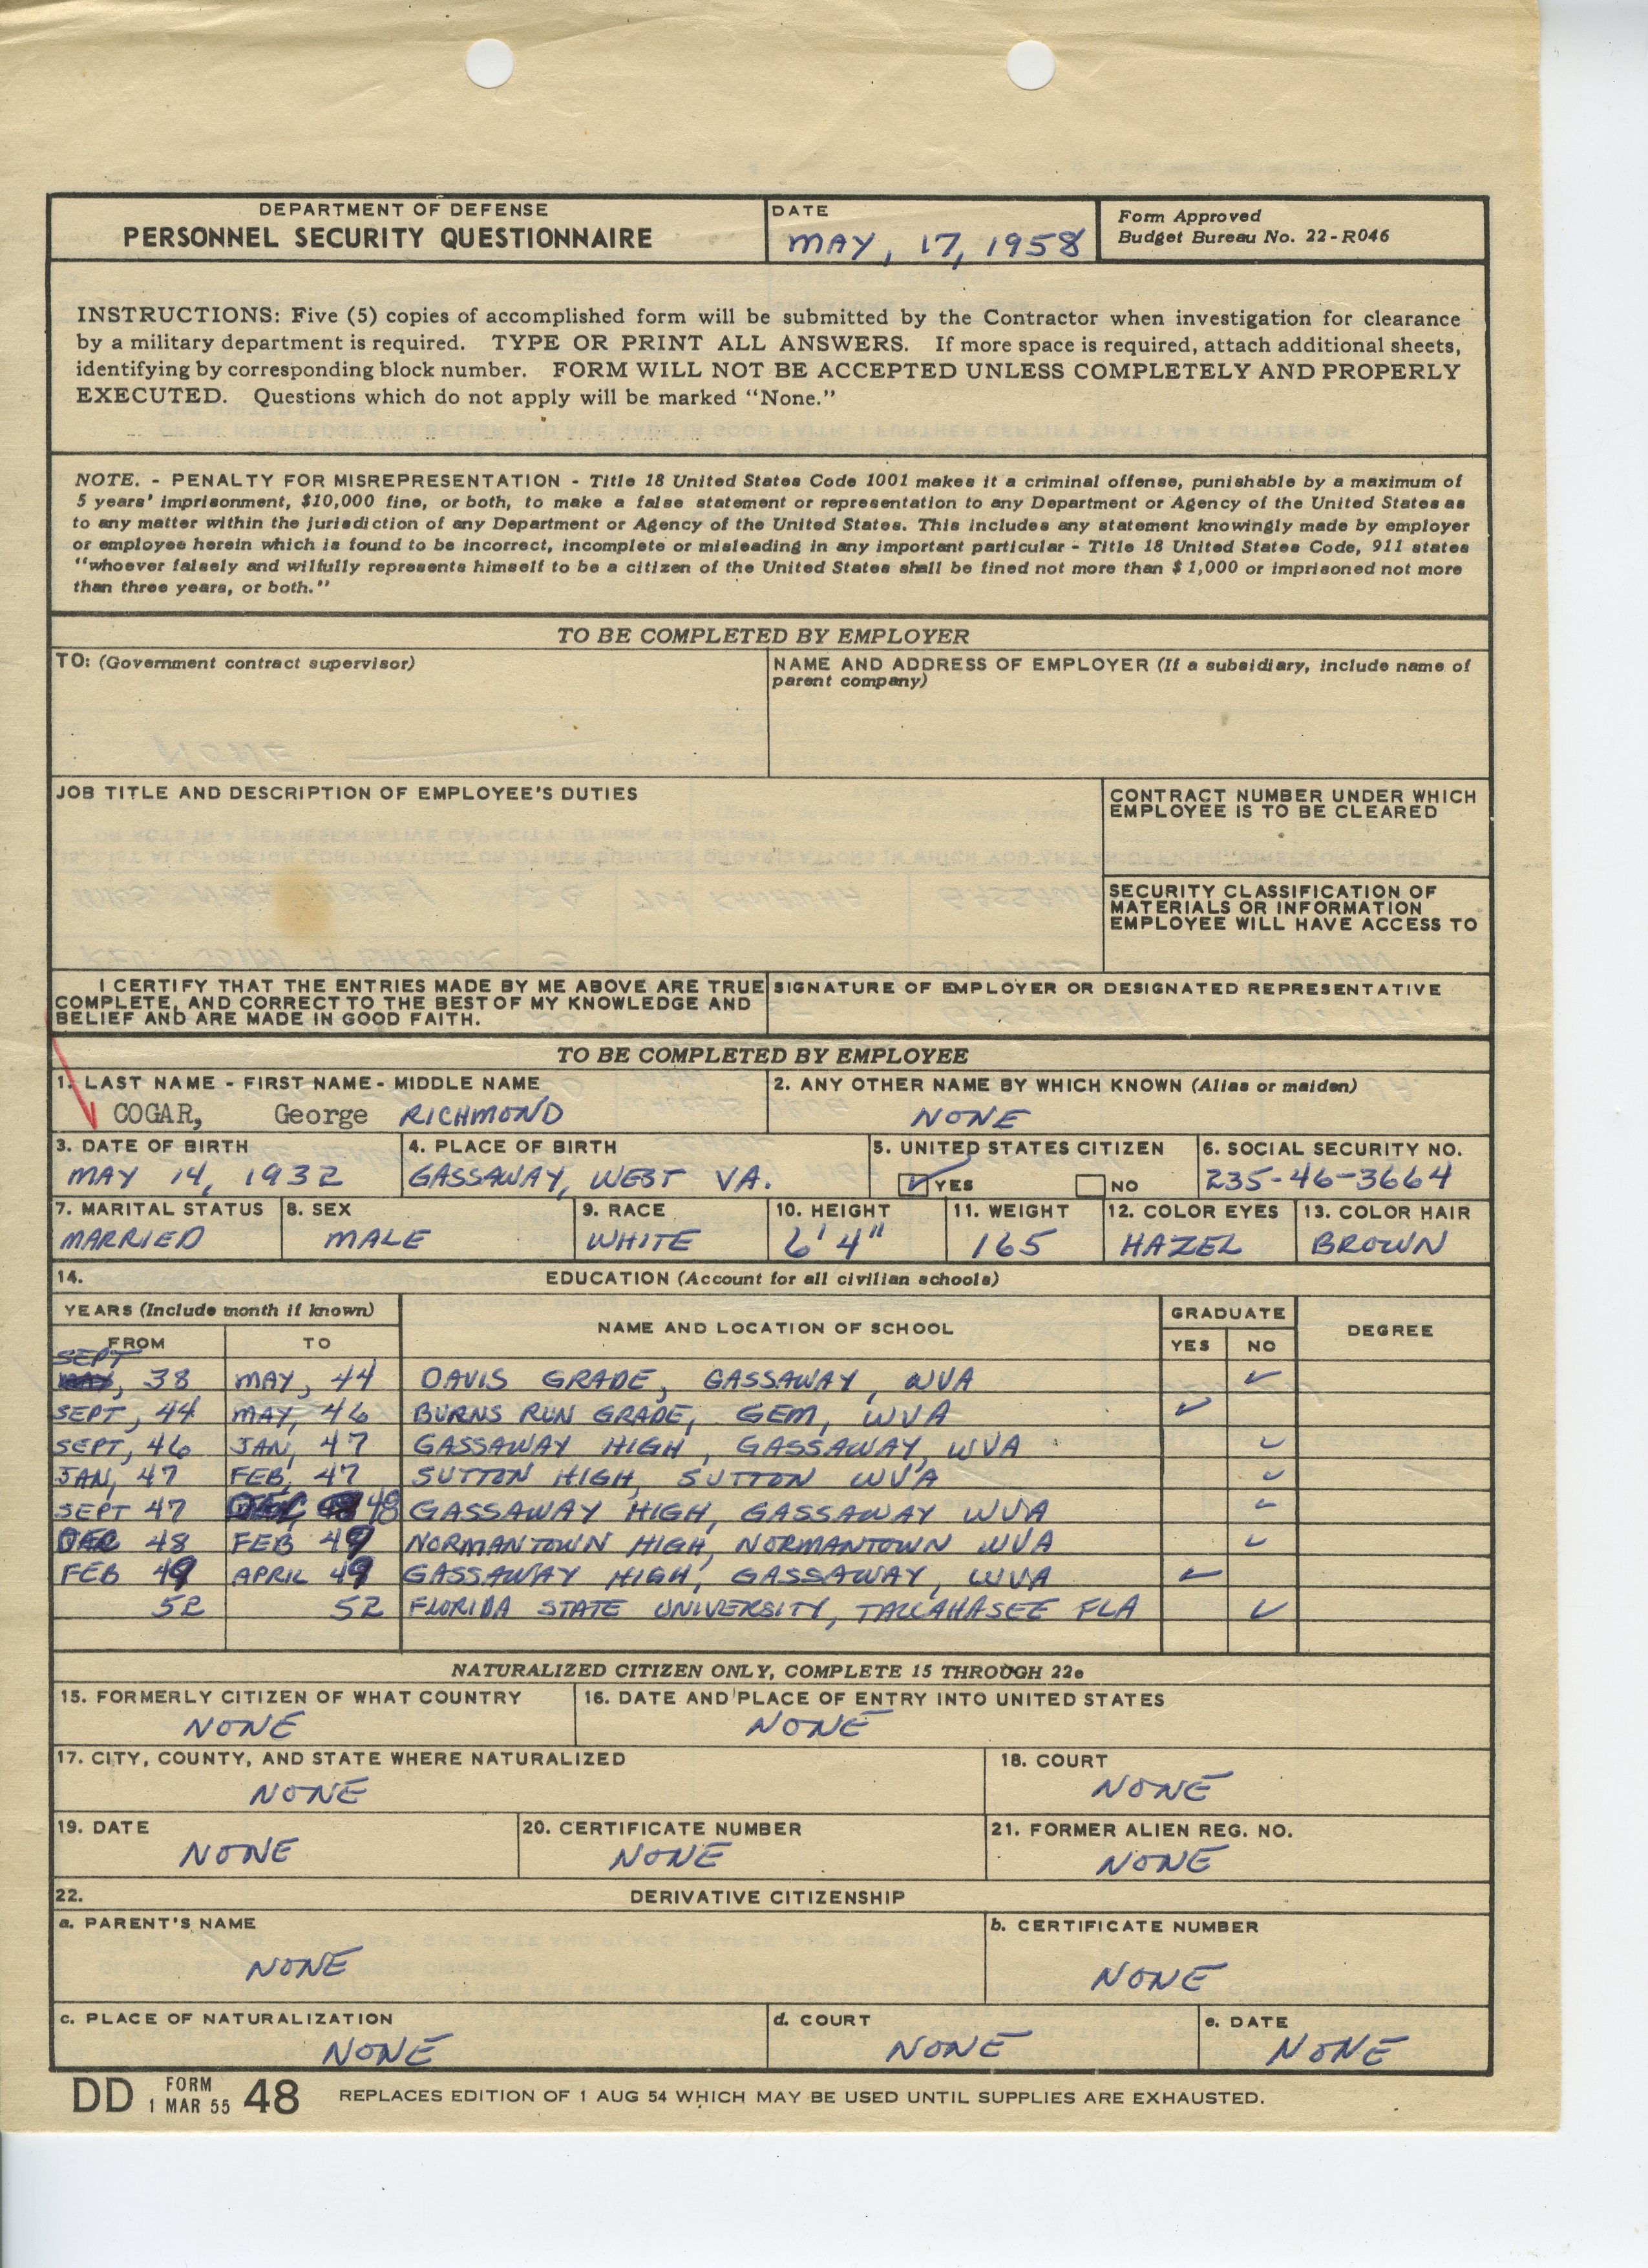 DEPARTMENT OF DEFENSE
PERSONNEL SECURITY QUESTIONNAIRE
DATE
MAY, 17, 1958
Form Approved
Budget Bureau No. 22-R046
INSTRUCTIONS: Five (5) copies of accomplished form will be submitted by the Contractor when investigation for clearance
by a military department is required. TYPE OR PRINT ALL ANSWERS. If more space is required, attach additional sheets,
identifying by corresponding block number. FORM WILL NOT BE ACCEPTED UNLESS COMPLETELY AND PROPERLY
EXECUTED. Questions which do not apply will be marked "None."
NOTE. - PENALTY FOR MISREPRESENTATION - Title 18 United States Code 1001 makes it a criminal offense, punishable by a maximum of
5 years' imprisonment, $10,000 fine, or both, to make a false statement or representation to any Department or Agency of the United States as
to any matter within the jurisdiction of any Department or Agency of the United States. This includes any statement knowingly made by employer
or employee herein which is found to be incorrect, incomplete or misleading in any important particular - Title 18 United States Code, 911 states
"whoever falsely and wilfully represents himself to be a citizen of the United States shall be fined not more than $1,000 or imprisoned not more
than three years, or both."
TO BE COMPLETED BY EMPLOYER
TO: (Government contract supervisor)
NAME AND ADDRESS OF EMPLOYER (If a subsidiary, include name of
parent company)
JOB TITLE AND DESCRIPTION OF EMPLOYEE'S DUTIES
CONTRACT NUMBER UNDER WHICH
EMPLOYEE IS TO BE CLEARED
SECURITY CLASSIFICATION OF
MATERIALS OR INFORMATION
EMPLOYEE WILL HAVE ACCESS TO
I CERTIFY THAT THE ENTRIES MADE BY ME ABOVE ARE TRUE
COMPLETE, AND CORRECT TO THE BEST OF MY KNOWLEDGE AND
BELIEF AND ARE MADE IN GOOD FAITH.
SIGNATURE OF EMPLOYER OR DESIGNATED REPRESENTATIVE
TO BE COMPLETED BY EMPLOYEE
1. LAST NAME - FIRST NAME - MIDDLE NAME
COGAR, George RICHMOND
2. ANY OTHER NAME BY WHICH KNOWN (Alias or maiden)
NONE
3. DATE OF BIRTH
MAY 14, 1932
4. PLACE OF BIRTH
GASSAWAY, WEST VA.
5. UNITED STATES CITIZEN
YES NO
6. SOCIAL SECURITY NO.
235-46-3664
7. MARITAL STATUS
MARRIED
8. SEX
MALE
9. RACE
WHITE
10. HEIGHT
6'4"
11. WEIGHT
165
12. COLOR EYES
HAZEL
13. COLOR HAIR
BROWN
14. EDUCATION (Account for all civilian schools)
YEARS (Include month if known)
FROM TO
NAME AND LOCATION OF SCHOOL
GRADUATE
YES NO
DEGREE
SEPT
, 38 MAY, 44 DAVIS GRADE, GASSAWAY, WVA ✓
SEPT, 44 MAY, 46 BURNS RUN GRADE, GEM, WVA ✓
SEPT, 46 JAN, 47 GASSAWAY HIGH, GASSAWAY, WVA ✓
JAN, 47 FEB, 47 SUTTON HIGH, SUTTON WVA ✓
SEPT 47 48 GASSAWAY HIGH, GASSAWAY WVA ✓
48 FEB 49 NORMANTOWN HIGH, NORMANTOWN WVA ✓
FEB 49 APRIL 49 GASSAWAY HIGH, GASSAWAY, WVA ✓
52 52 FLORIDA STATE UNIVERSITY, TALLAHASEE FLA ✓
NATURALIZED CITIZEN ONLY, COMPLETE 15 THROUGH 22e
15. FORMERLY CITIZEN OF WHAT COUNTRY
NONE
16. DATE AND PLACE OF ENTRY INTO UNITED STATES
NONE
17. CITY, COUNTY, AND STATE WHERE NATURALIZED
NONE
18. COURT
NONE
19. DATE
NONE
20. CERTIFICATE NUMBER
NONE
21. FORMER ALIEN REG. NO.
NONE
22. DERIVATIVE CITIZENSHIP
a. PARENT'S NAME
NONE
b. CERTIFICATE NUMBER
NONE
c. PLACE OF NATURALIZATION
NONE
d. COURT
NONE
e. DATE
NONE
DD FORM 1 MAR 55 48 REPLACES EDITION OF 1 AUG 54 WHICH MAY BE USED UNTIL SUPPLIES ARE EXHAUSTED.